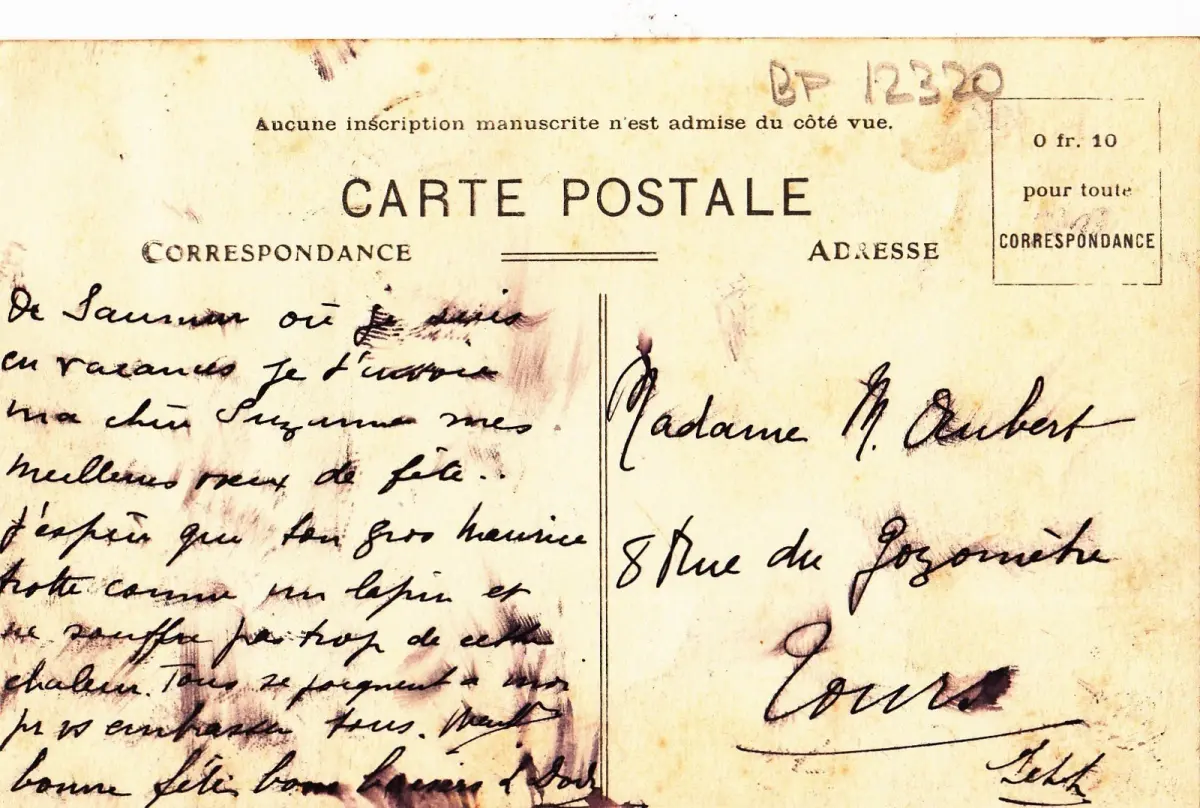 BP 12320
Aucune inscription manuscrite n'est admise du côté vue.
O fr. 10
pour toute
CORRESPONDANCE
CARTE POSTALE
CORRESPONDANCE
ADRESSE
De Saumur où je suis
en vacances je t'envoie
ma chère Suzanne mes
meilleurs vœux de fête..
J'espère que ton gros Maurice
trotte comme un lapin et
ne souffre pas trop de cette
chaleur. Tous se joignent à moi
pr vs embrasser tous.
bonne fête bons baisers
Madame M. Aubert
8 Rue du Gozomètre
Tours